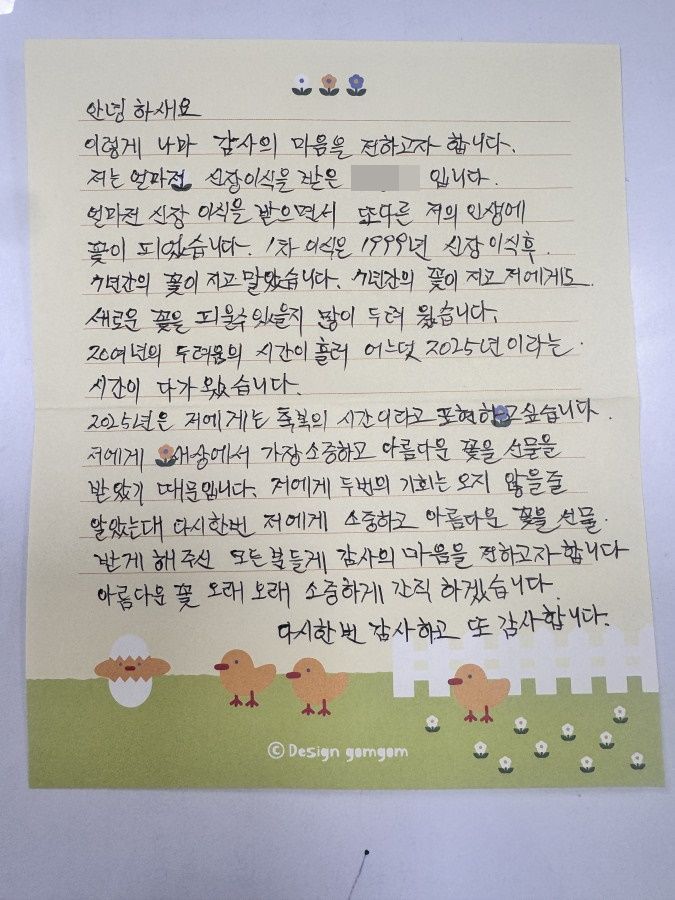 안녕 하새요
이렇게 나마 감사의 마음을 전하고자 합니다.
저는 얼마전 신장이식을 받은 입니다.
얼마전 신장 이식을 받으면서 또다른 저의 인생에
꽃이 피었습니다. 1차 이식은 1999년 신장 이식후.
7년간의 꽃이 지고 말았습니다. 7년간의 꽃이 지고 저에게도.
새로운 꽃을 피울수 있을지 많이 두려 웠습니다.
20여년의 두려움의 시간이 흘러 어느덧 2025년 이라는.
시간이 다가 왔습니다.
2025년은 저에게는 축복의 시간이라고 표현하고 싶습니다.
저에게 새상에서 가장 소중하고 아름다운 꽃을 선물을
받았기 때문입니다. 저에게 두번의 기회는 오지 않을줄
알았는대 다시한번 저에게 소중하고 아름다운 꽃을 선물.
받게 해주신 모든분들게 감사의 마음을 전하고자 합니다
아름다운 꽃 오래 오래 소중하게 간직 하겠습니다.
다시한번 감사하고 또 감사합니다.
© Design gomgom